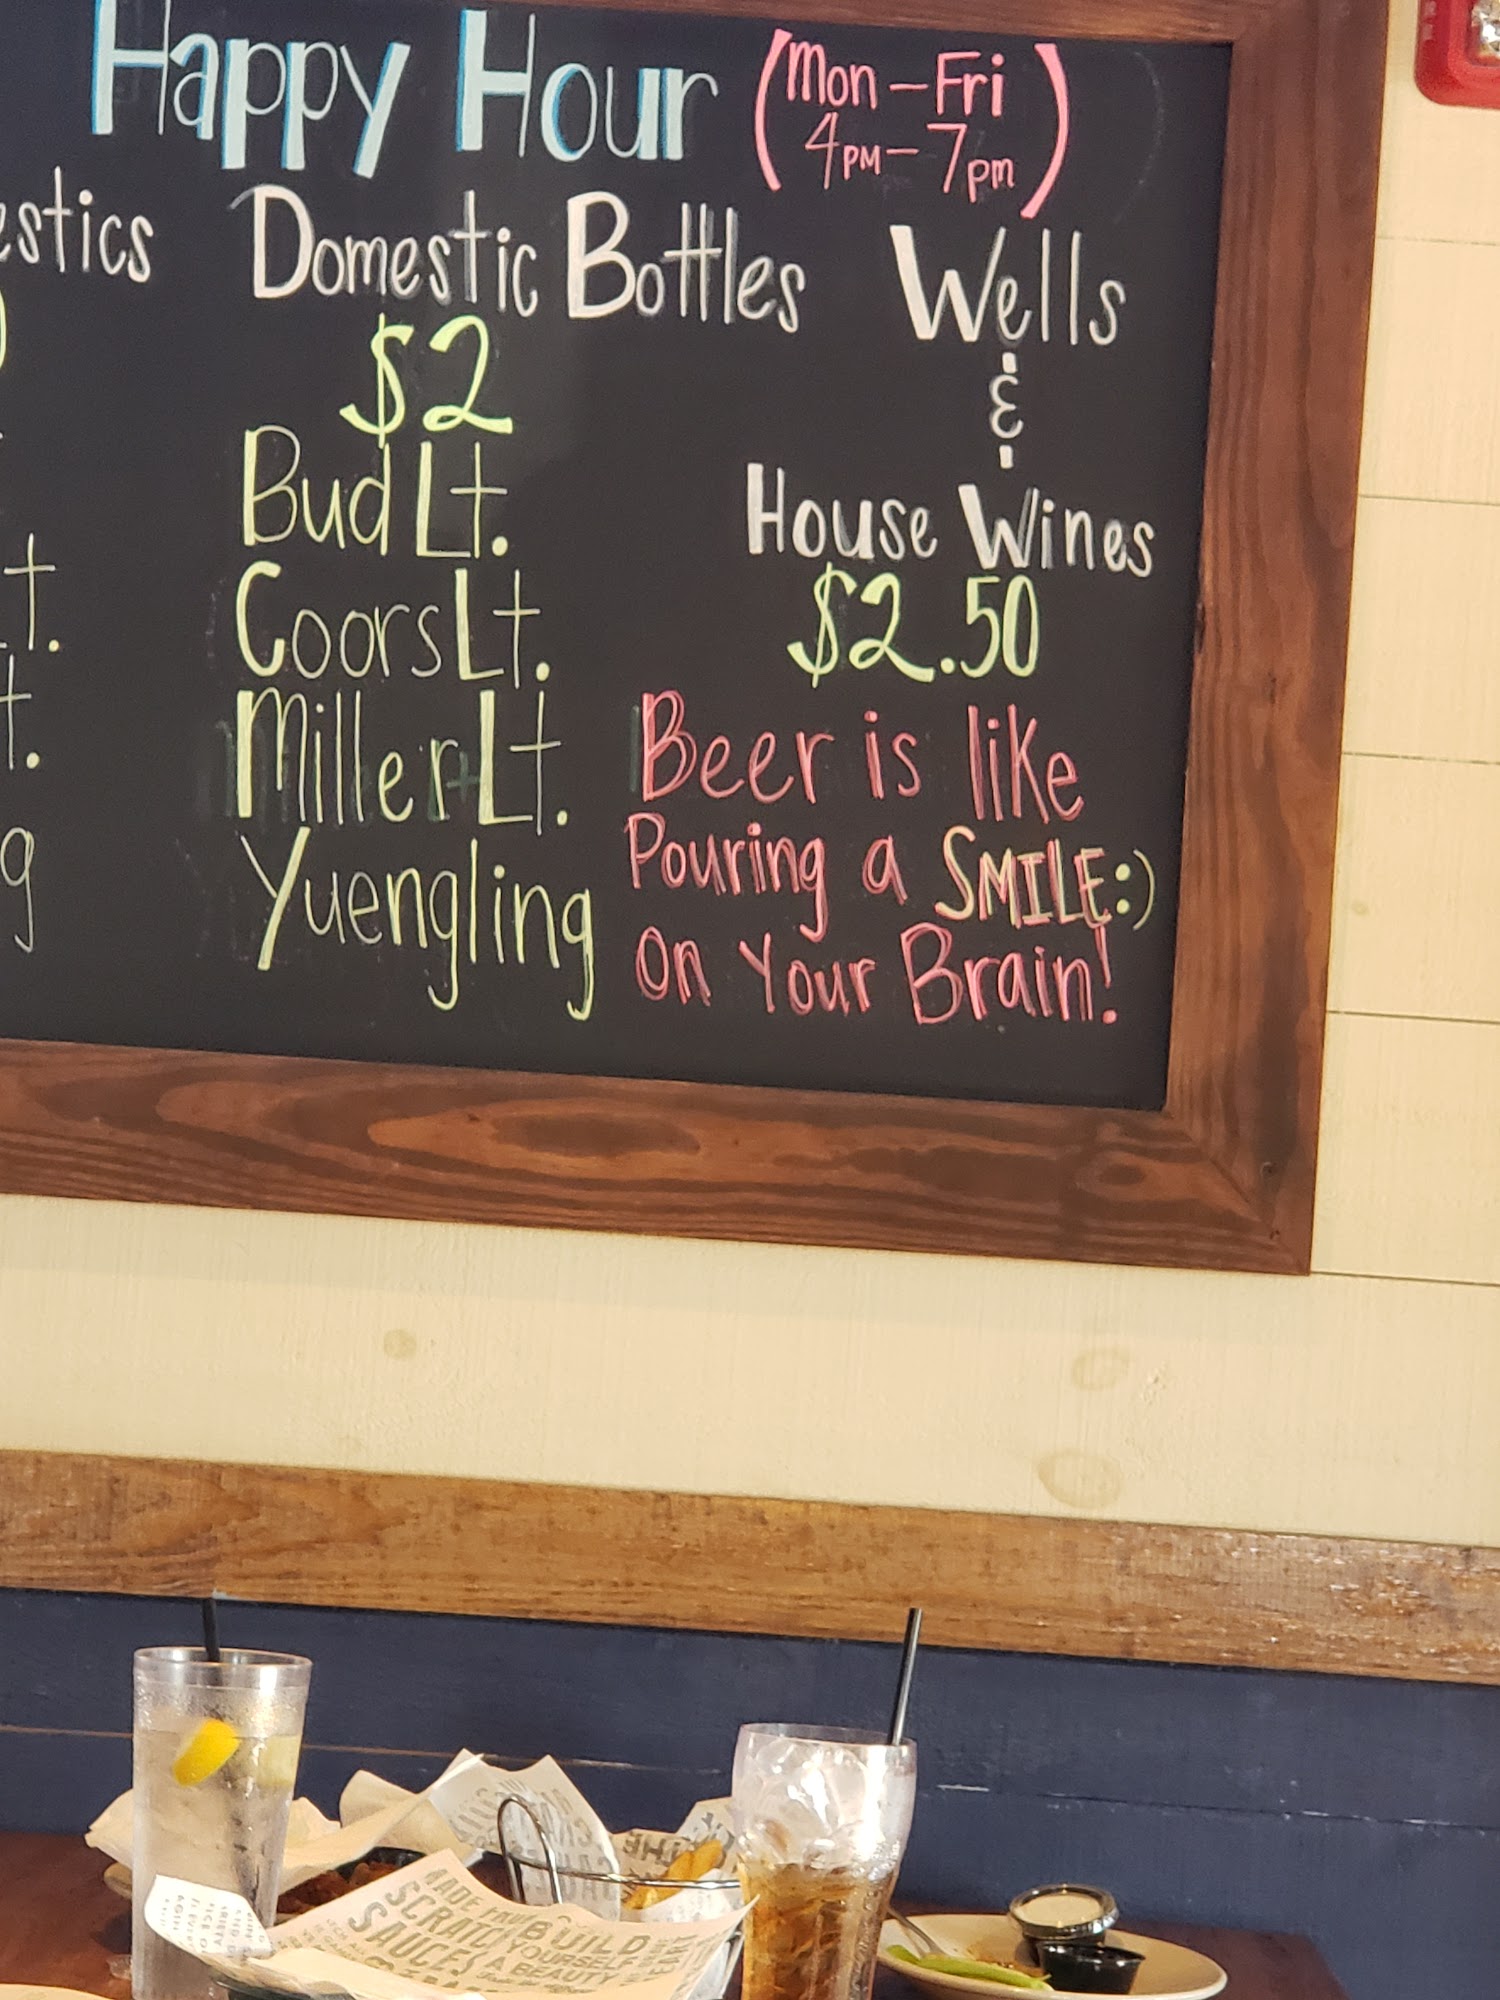 Happy Hour (Mon - Fri
4pm - 7pm)
Domestic Bottles
$2
Bud Lt.
Coors Lt.
Miller Lt.
Yuengling
Wells
&
House Wines
$2.50
Beer is like
Pouring a SMILE:)
on Your Brain!
MADE FROM
SCRATCH
SAUCES
BUILD
YOURSELF
A BEAUTY